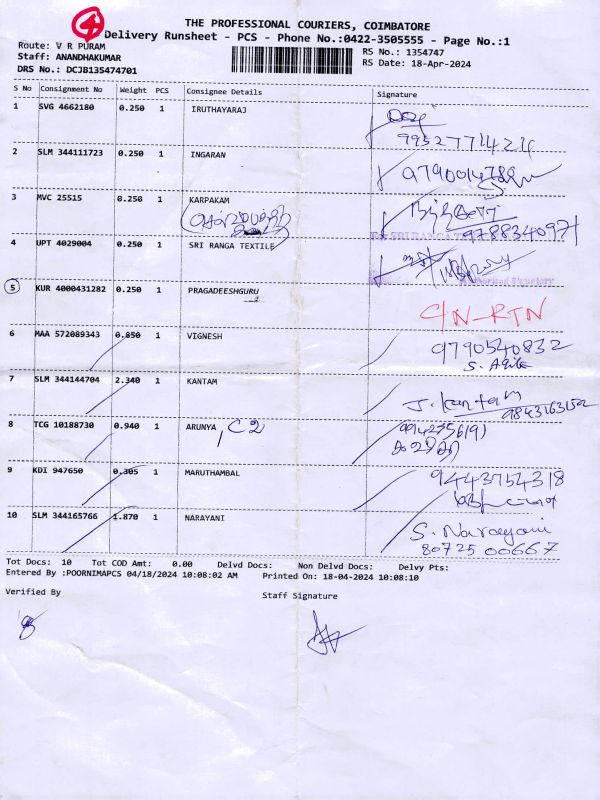 4
THE PROFESSIONAL COURIERS, COIMBATORE
Delivery Runsheet - PCS - Phone No.:0422-3505555 - Page No.:1
Route: V R PURAM
RS No.: 1354747
Staff: ANANDHAKUMAR
RS Date: 18-Apr-2024
DRS No.: DCJB135474701
S No Consignment No Weight PCS Consignee Details Signature
1 SVG 4662180 0.250 1 IRUTHAYARAJ
2 SLM 344111723 0.250 1 INGARAN
3 MVC 25515 0.250 1 KARPAKAM
9788340971
4 UPT 4029004 0.250 1 SRI RANGA TEXTILE
5 KUR 4000431282 0.250 1 PRAGADEESHGURU
C/N-RTN
6 MAA 572089343 0.850 1 VIGNESH 9790540832
7 SLM 344144704 2.340 1 KANTAM J. Kantam
9843163152
8 TCG 10188730 0.940 1 ARUNYA, C2
9 KDI 947650 0.305 1 MARUTHAMBAL 9443754318
10 SLM 344165766 1.870 1 NARAYANI S. Narayani
80725 00667
Tot Docs: 10 Tot COD Amt: 0.00 Delvd Docs: Non Delvd Docs: Delvy Pts:
Entered By :POORNIMAPCS 04/18/2024 10:08:02 AM Printed On: 18-04-2024 10:08:10
Verified By Staff Signature